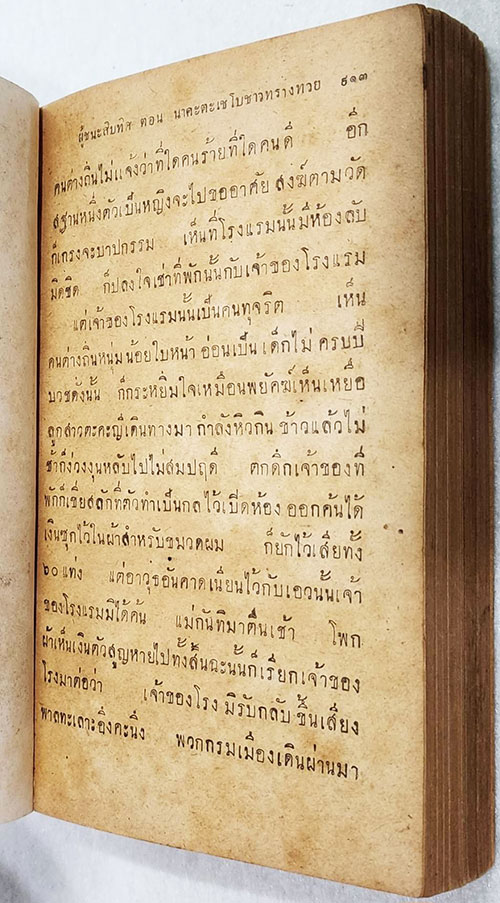 ผู้ชนะสิบทิศ ตอน นาคะตะเชโบชาวทรางทวย ๙๑๓
คนต่างถิ่นไม่แจ้งว่าที่ใดคนร้ายที่ใดคนดี อีก
สฐานหนึ่งตัวเป็นหญิงจะไปขออาศัย สงฆ์ตามวัด
ก็เกรงจะบาปกรรม เห็นที่โรงแรมนั้นมีห้องลับ
มิดชิด ก็ปลงใจเช่าที่พักนั้นกับเจ้าของโรงแรม
แต่เจ้าของโรงแรมนั้นเป็นคนทุจริต เห็น
คนต่างถิ่นหนุ่มน้อยใบหน้าอ่อนเป็นเด็กไม่ครบปี
บวชดังนั้น ก็กระหยิ่มใจเหมือนพยัคฆ์เห็นเหยื่อ
ลูกสาวตะคะญีเดินทางมา กำลังหิวกินข้าวแล้วไม่
ช้าก็ง่วงงุนหลับไปไม่สมปฤดี ตกดึกเจ้าของที่
พักก็เขี่ยสลักที่ตัวทำเป็นกลไว้เปิดห้อง ออกค้นได้
เงินซุกไว้ในผ้าสำหรับขมวดผม ก็ยักไว้เสียทั้ง
๖๐ แท่ง แต่อาวุธอันคาดเนียนไว้กับเอวนั้นเจ้า
ของโรงแรมมิได้ค้น แม่กันทิมาตื่นเช้า โพก
ผ้าเห็นเงินตัวสูญหายไปทั้งสิ้นฉะนั้นก็เรียกเจ้าของ
โรงมาต่อว่า เจ้าของโรงมิรับกลับขึ้นเสียง
พาลทะเลาะอึงคะนึง พวกกรมเมืองเดินผ่านมา